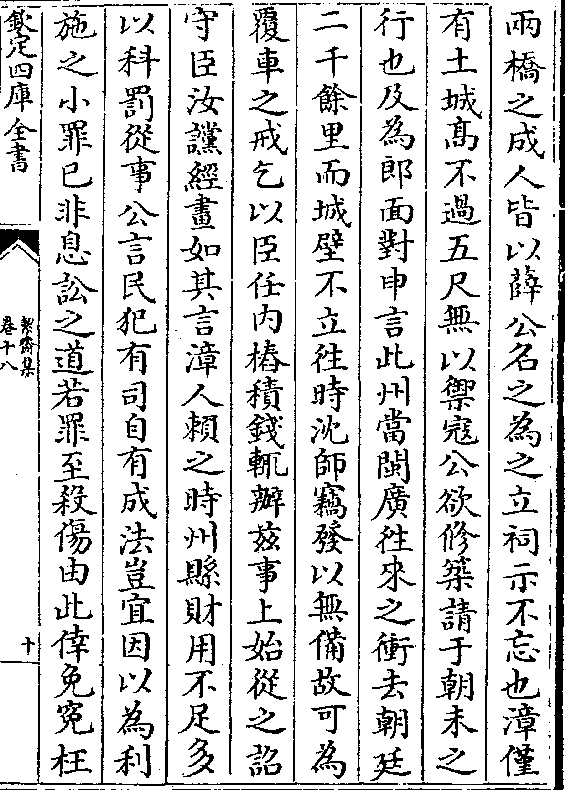 兩橋之成人皆以薛公名之為之立祠示不忘也漳僅
有土城髙不過五尺無以禦寇公欲修築請于朝未之
行也及為郎面對申言此州當閩廣徃來之衝去朝廷
二千餘里而城壁不立徃時沈師竊發以無備故可為
覆車之戒乞以臣任内樁積錢輒辦兹事上始從之詔
守臣汝讜經畫如其言漳人賴之時州縣財用不足多
以科罰從事公言民犯有司自有成法豈宜因以為利
施之小罪已非息訟之道若罪至殺傷由此倖免冤枉
欽定四庫全書
絜齋集
卷十八
十